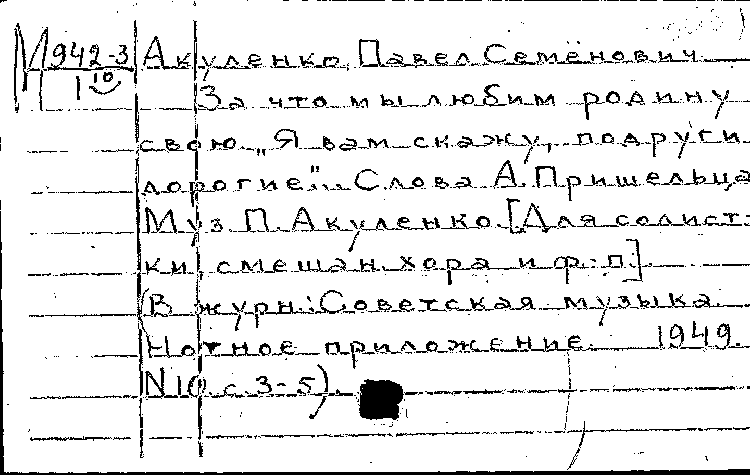 М942-3 Акуленко, Павел Семёнович.
1 10 За что мы любим родину
свою. „Я вам скажу, подруги
дорогие"... Слова А. Пришельца
Муз. П. Акуленко. [Для солист-
ки, смешан. хора и ф.-п.].
(В журн.: Советская музыка.
Нотное приложение. 1949.
N 10. с. 3-5).